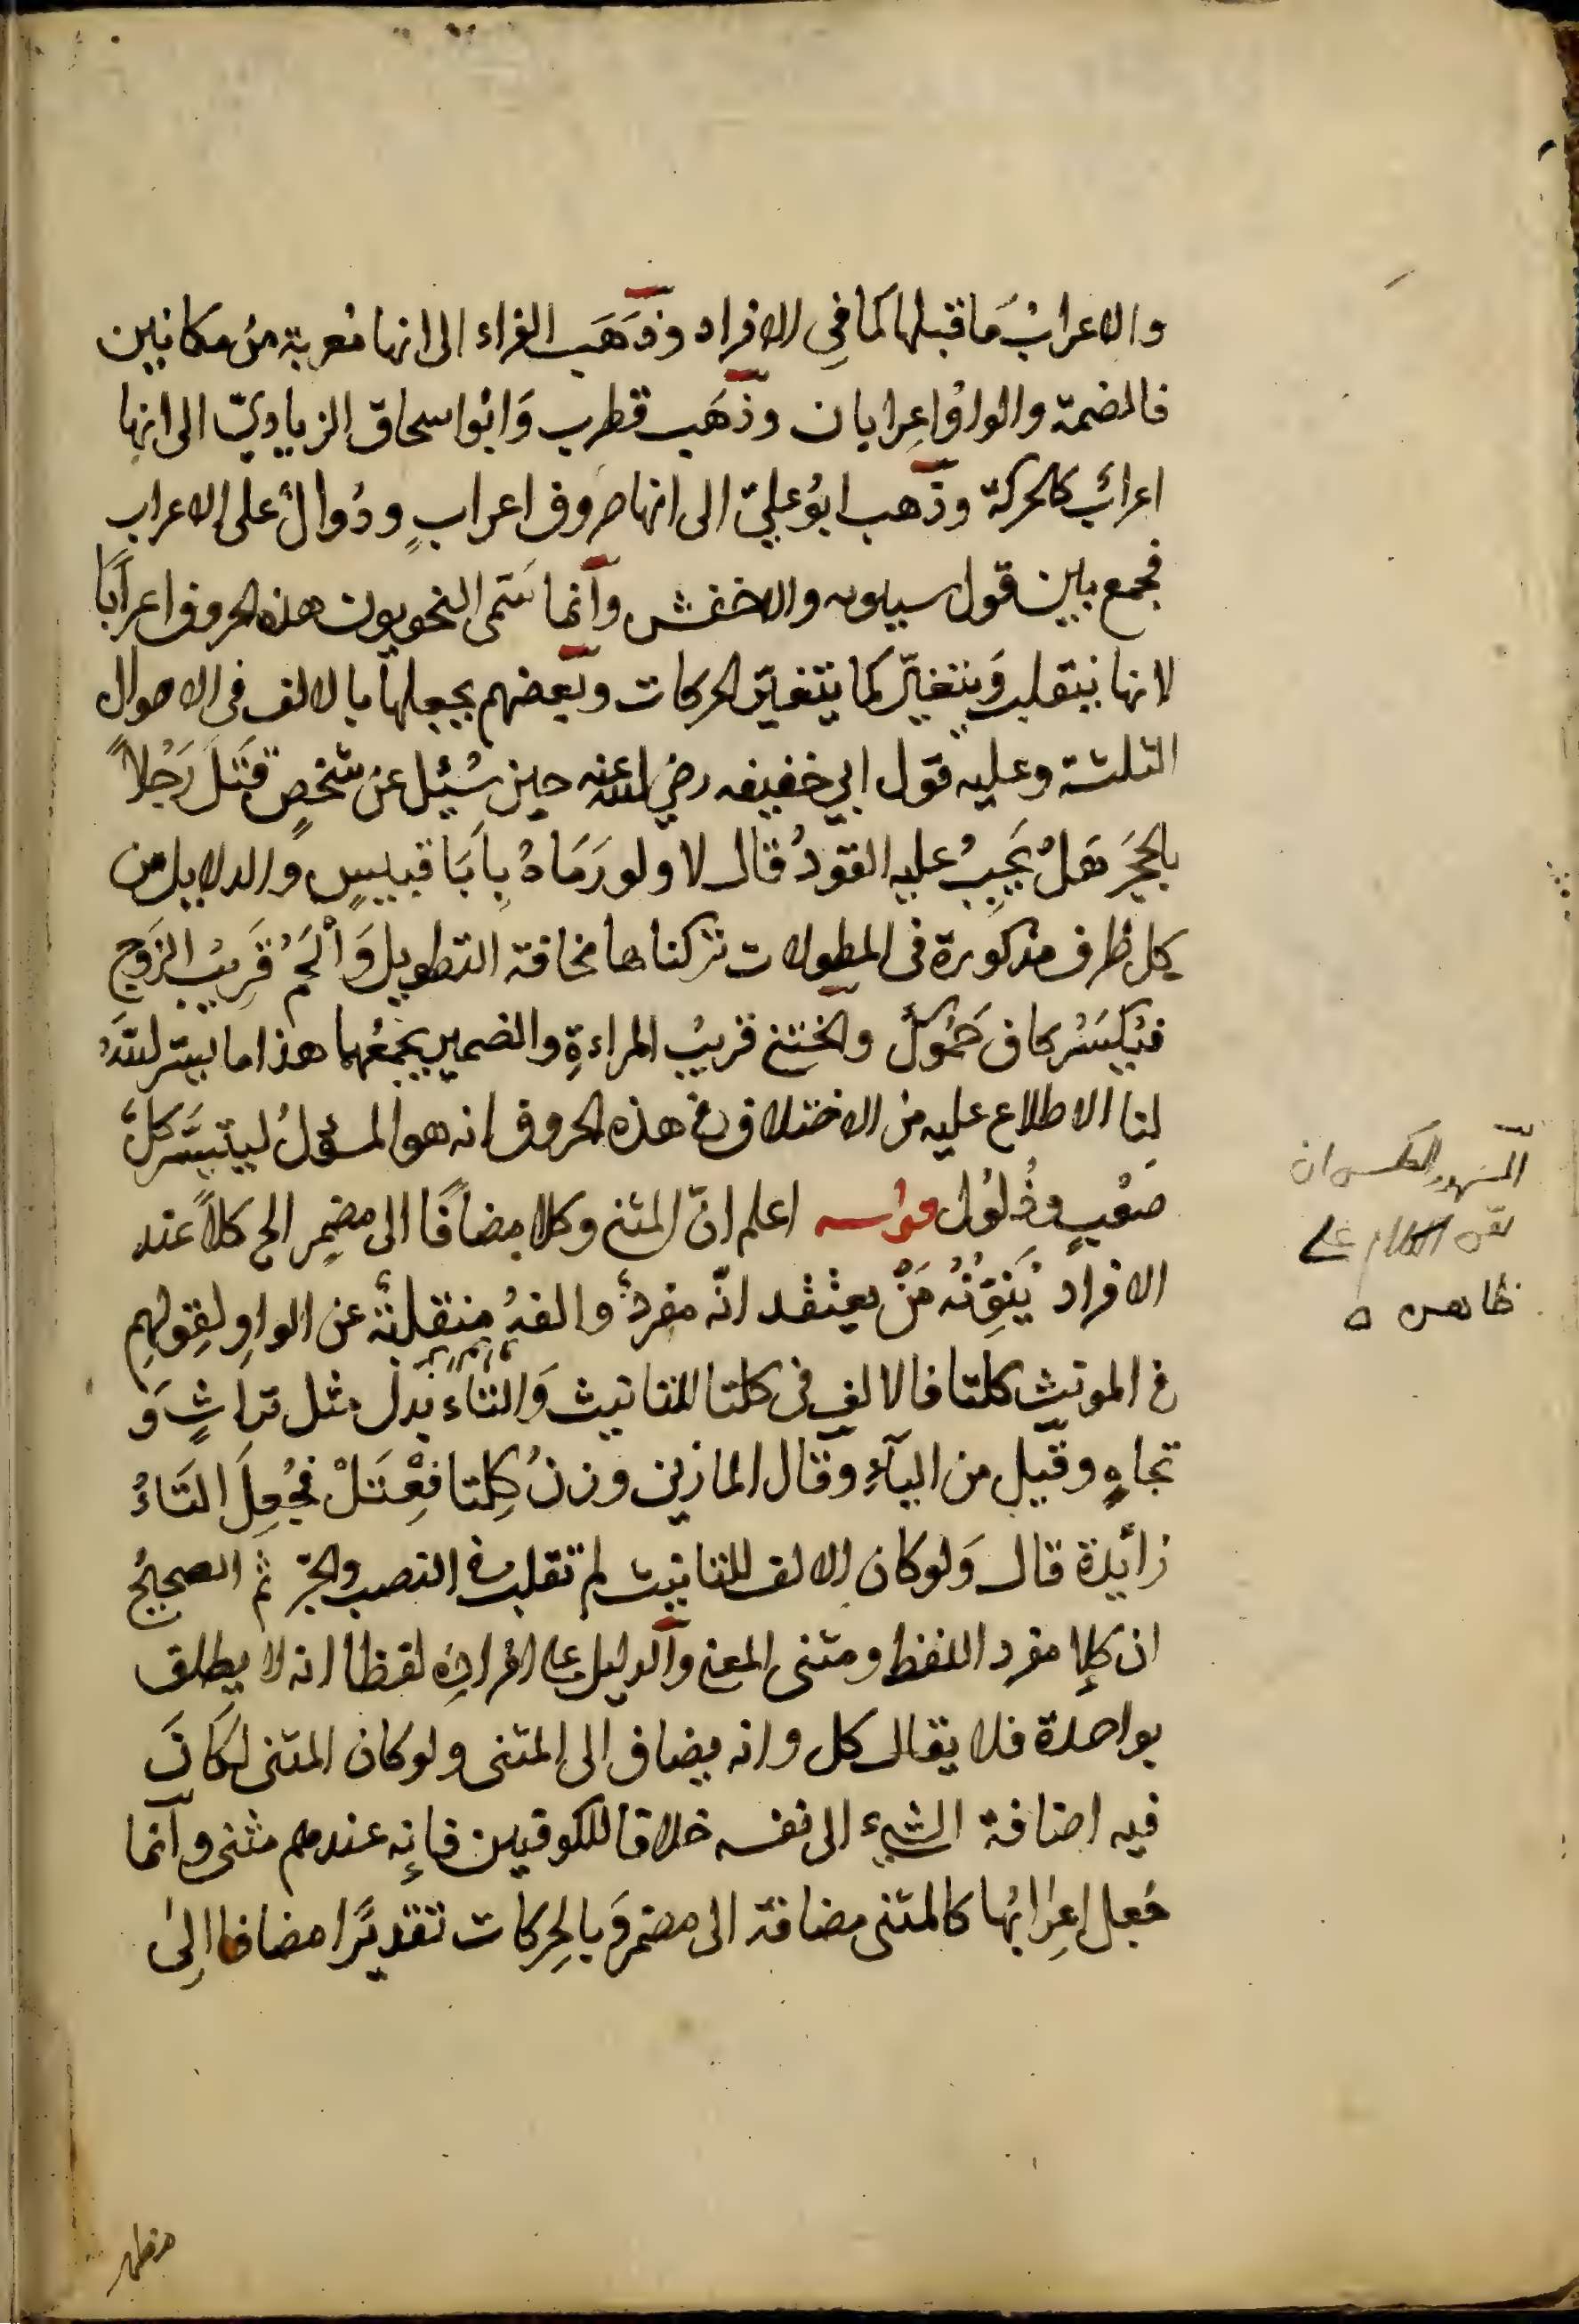 والاعرابُ مَا قبلها كمَا فِي الافراد وذَهَبَ الفراء الى انها مُعربة مِن مكانين
فالضمة والواوُ اعِرابان وذَهَب قطرب وَابُوا سحاق الزياديّ الى انها
اعرابٌ كالحركة وذَهب ابوُ عليّ الى انها حروف اعرابٍ ودُوالٌ على الاعراب
فجمع بين قول سيبويه والاخفش وآنما سَمّى النحويون هذه الحروف اعراَبًا
لانها ينتقلب وَيتغيّر كمَا يتغيّر الحركات وبَعضهم يجعلها بالالف فى الاحوال
الثلثة وعليه قول ابي خفيفه رضي الله عنه حين سُئِل عَن شَخصٍ قَتَلَ رَجُلاً
بالحجَرَ هَلْ يَجِبُ عليه القودُ قال لا ولو رَمَاهُ بِاَبَا قبيسٍ والدلايل من
كل طرف مذكوُرة فى المطولات تركناها مخافة التطويل وَالْحَمُ قَرِيبُ الزَوج
فيُكسَرُ كاف حَمُوكِ والختن قريبُ المراءةِ والضمير يجمَعُهما هذا ما يسّر اللهُ
لنا الاطلاع عليه من الاختلاف في هذه الحروف انه هو المسؤلُ ليتيَسَّر كلّ
صَعْبٍ وذُلوُل قوله اعلم انّ المثنى وكلا مضافًا الى مضمِر الخ كلاً عند
الافراد يُنَوِّنُهُ مَنْ يعتقد انّه مفردٌ والفهُ منقلبةٌ عن الواوِ لقِولهِم
في المونث كلتا فالالف فى كلتا للتانيث وَالتاء بَدل مثل تراثٍ وَ
تجاهٍ وقيل من اليآءِ وقال المازنى وزنُ كِلتا فِعْتَلْ فجُعِلَ التَاءُ
زأيدة قال وَلوكان الالف للتانيث لم تقلب في النصب والجرّ ثم الصحيحُ
ان كلا مفرد اللفظ ومثنى المعنى وآلدليل على افرادِه لفظا انه لا يطلق
بواحدة فلا يقال كل وانه يضاف الى المثنى ولوكان المثنى لكَانَ
فيه اضافة الشيء الى نفسه خلافا للكوفيين فاِنه عندهم مثنى وآنما
جُعل اِعرَابُها كالمثنى مضافة الى مضمر وَبالحِركات تقديرًا مضافا اِلىٰ
المشهور العكس ان
على
ظاهره
مظهر